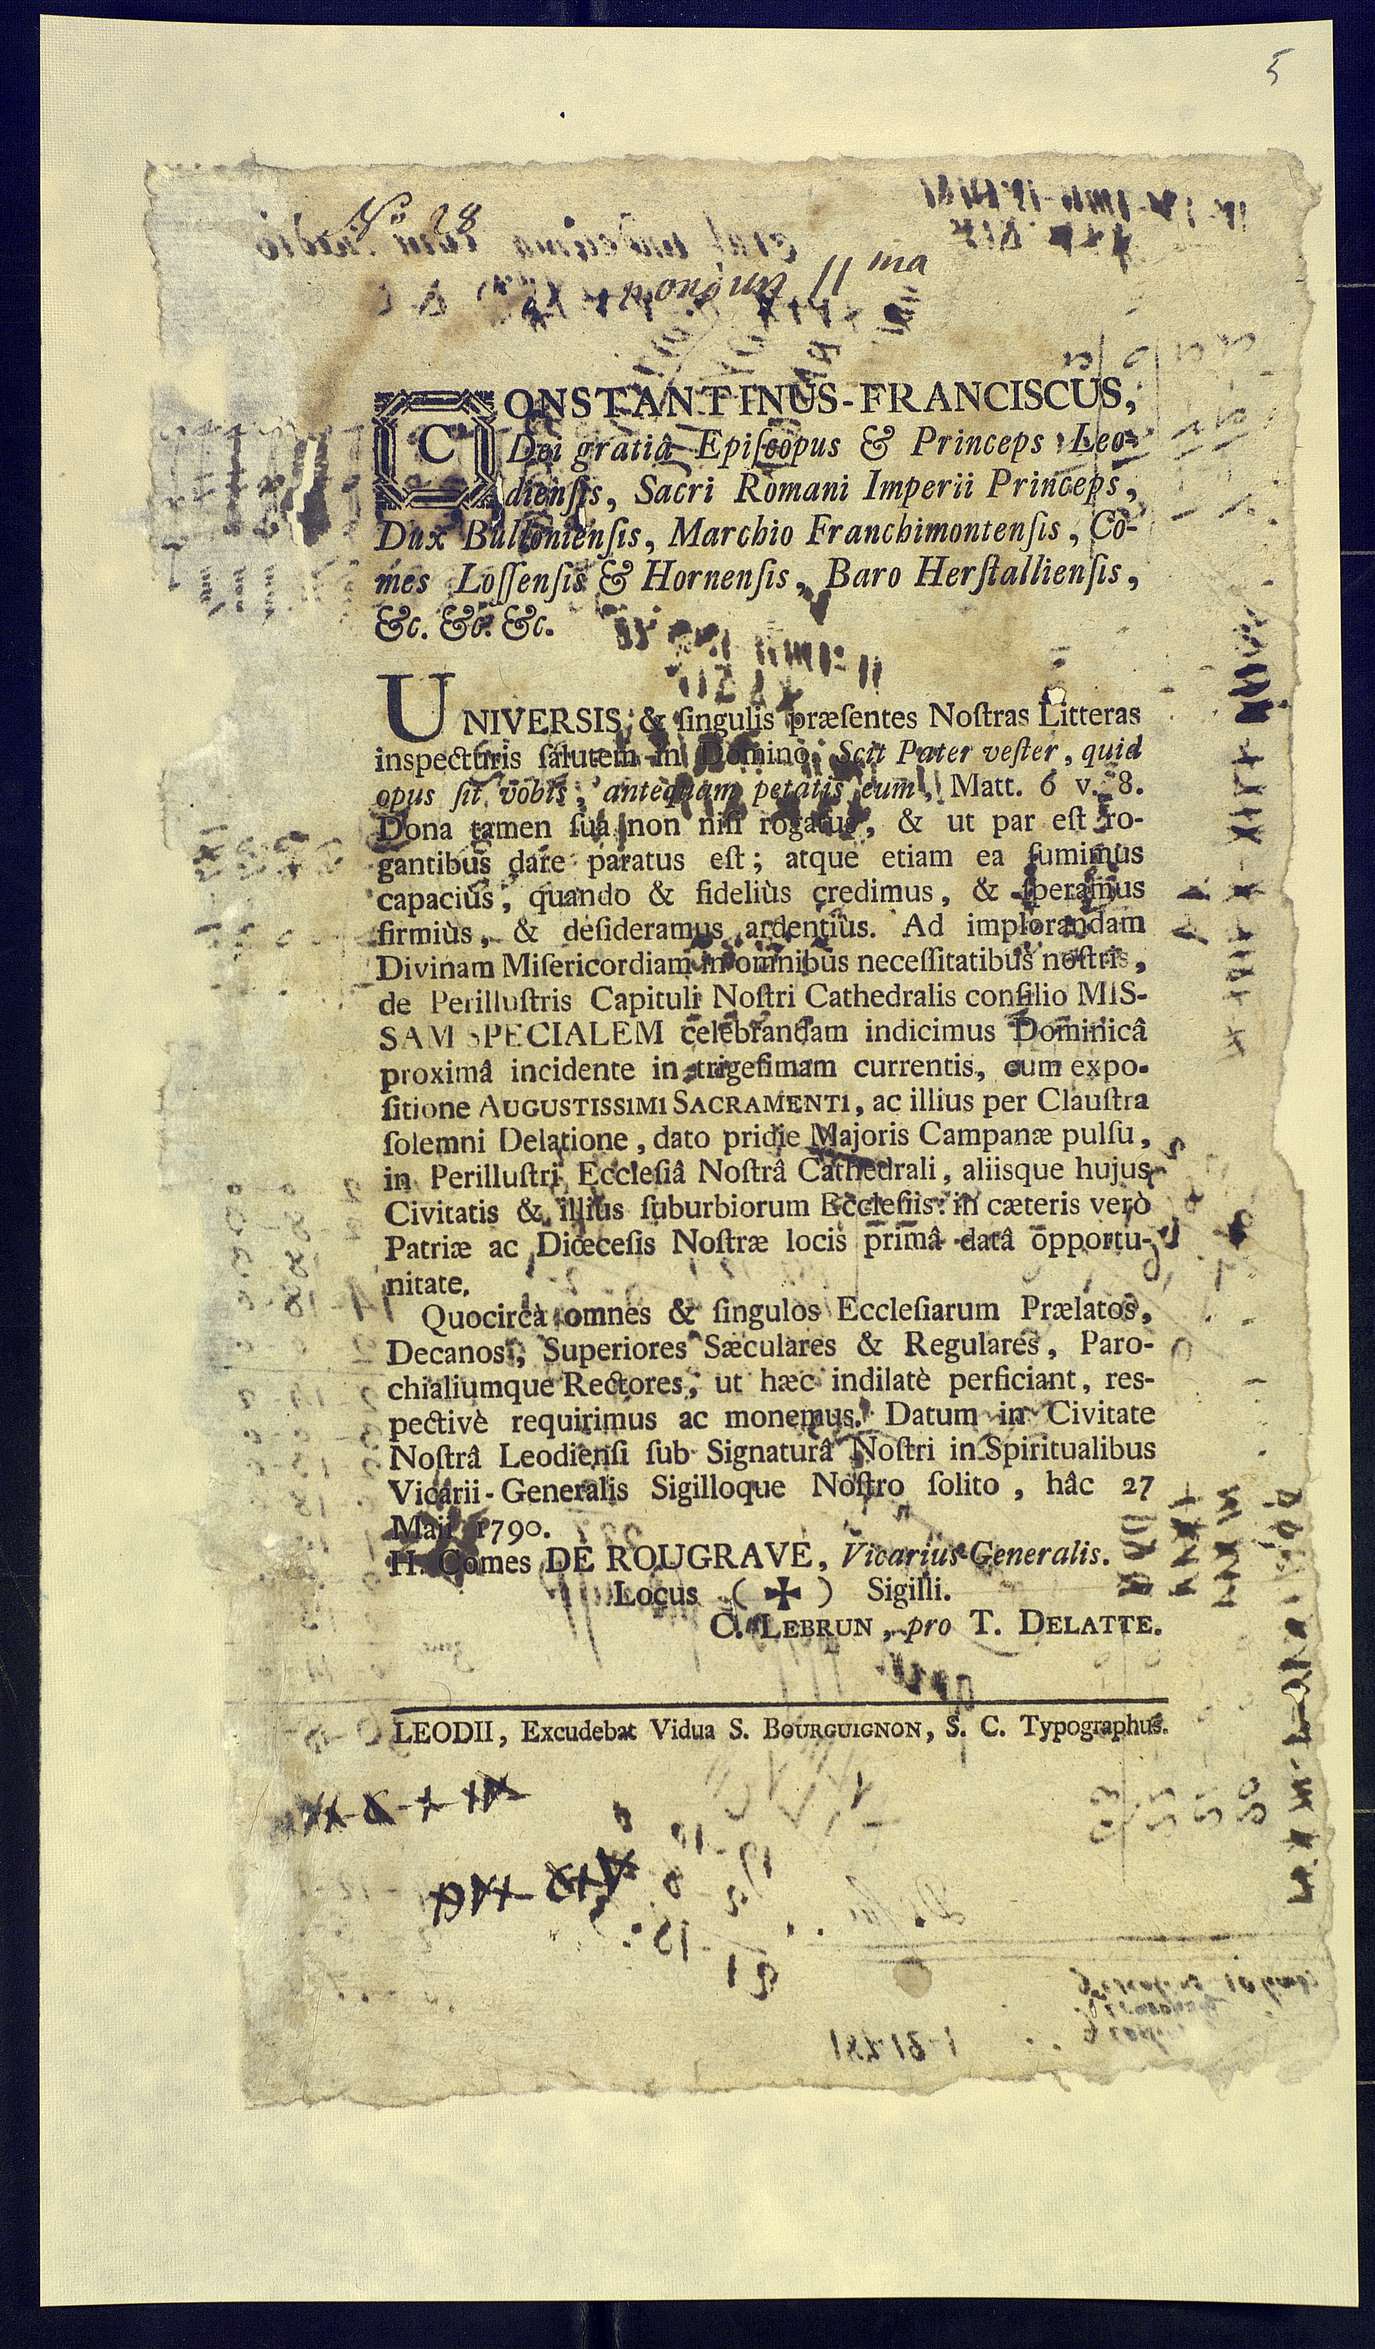 5
N° 28
11 ma
CONSTANTINUS-FRANCISCUS,
Dei gratiâ Epiſcopus & Princeps Leo-
dienſis, Sacri Romani Imperii Princeps,
Dux Bullonienſis, Marchio Franchimontenſis, Co-
mes Loſſenſis & Hornenſis, Baro Herſtallienſis,
&c. &c. &c.
UNIVERSIS & ſingulis præſentes Noſtras Litteras
inspecturis ſalutem in Domino. Scit Pater veſter, quid
opus ſit vobis, antequam petatis eum, Matt. 6 v. 8.
Dona tamen ſua non niſi rogatus, & ut par eſt ro-
gantibus dare paratus eſt; atque etiam ea ſumimus
capaciùs, quando & fideliùs credimus, & ſperamus
firmiùs, & deſideramus ardentiùs. Ad implorandam
Divinam Miſericordiam in omnibus neceſſitatibus noſtris,
de Perilluſtris Capituli Noſtri Cathedralis conſilio MIS-
SAM SPECIALEM celebrandam indicimus Dominicâ
proximâ incidente in trigeſimam currentis, cum expo-
ſitione AUGUSTISSIMI SACRAMENTI, ac illius per Clauſtra
ſolemni Delatione, dato pridie Majoris Campanæ pulſu,
in Perilluſtri Eccleſiâ Noſtrâ Cathedrali, aliisque hujus
Civitatis & illius ſuburbiorum Eccleſiis: in cæteris verò
Patriæ ac Diœceſis Noſtræ locis primâ datâ opportu-
nitate.
Quocircà omnes & ſingulos Eccleſiarum Prælatos,
Decanos, Superiores Sæculares & Regulares, Paro-
chialiumque Rectores, ut hæc indilatè perficiant, res-
pectivè requirimus ac monemus. Datum in Civitate
Noſtrâ Leodienſi ſub Signaturâ Noſtri in Spiritualibus
Vicarii-Generalis Sigilloque Noſtro ſolito, hâc 27
Maii 1790.
H. Comes DE ROUGRAVE, Vicarius-Generalis.
Locus ( ✠ ) Sigilli.
C. LEBRUN, pro T. DELATTE.
LEODII, Excudebat Vidua S. BOURGUIGNON, S. C. Typographus.